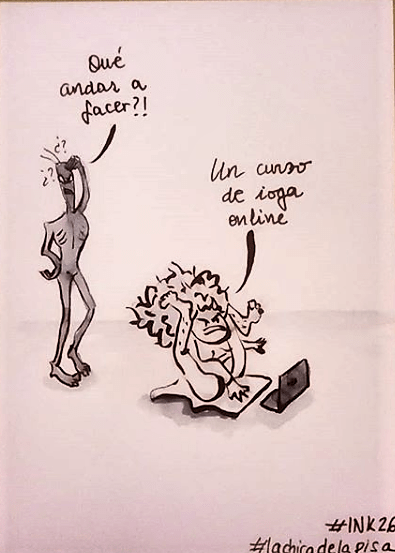 Qué
andas a
facer?!
¿?
¿?
Un curso
de ioga
online
#INK26
#lachicadelapisa